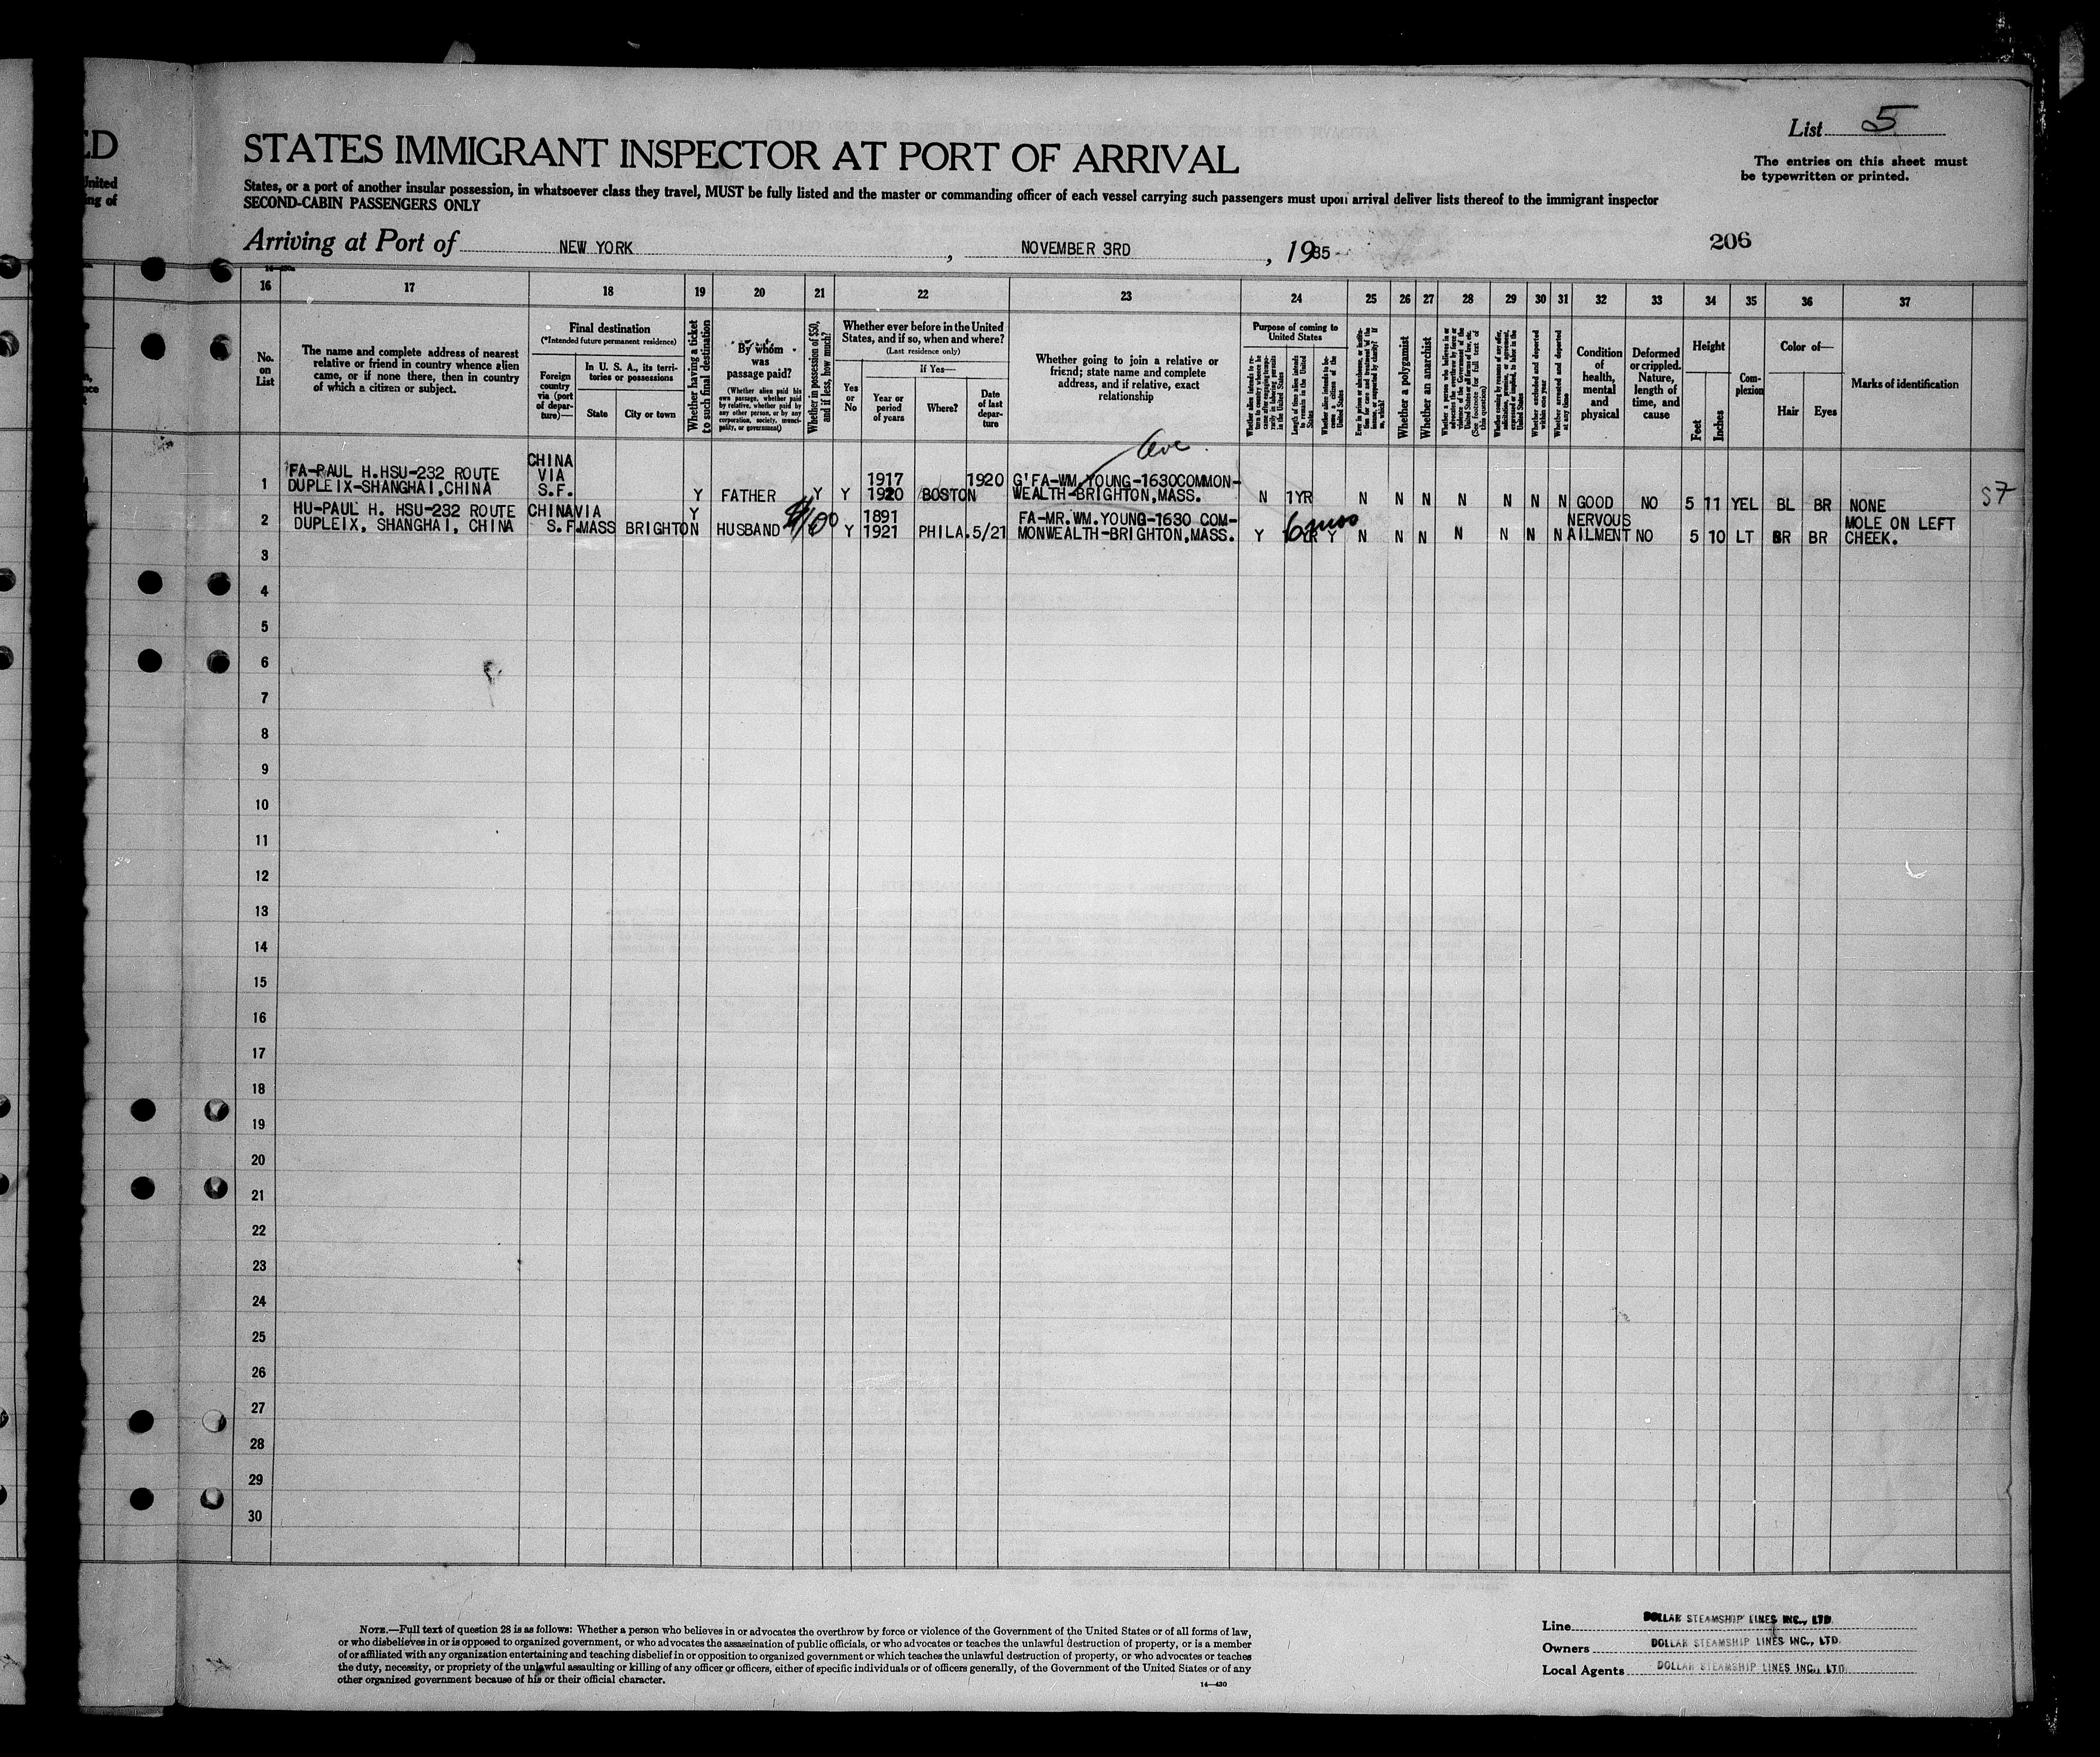 List 5
The entries on this sheet must
be typewritten or printed.
ED
STATES IMMIGRANT INSPECTOR AT PORT OF ARRIVAL
United
ing of
States, or a port of another insular possession, in whatsoever class they travel, MUST be fully listed and the master or commanding officer of each vessel carrying such passengers must upon arrival deliver lists thereof to the immigrant inspector
SECOND-CABIN PASSENGERS ONLY
Arriving at Port of NEW YORK, NOVEMBER 3RD, 1935
206
16 17 18 19 20 21 22 23 24 25 26 27 28 29 30 31 32 33 34 35 36 37
No. on List
The name and complete address of nearest
relative or friend in country whence alien
came, or if none there, then in country
of which a citizen or subject.
Final destination
(*Intended future permanent residence)
Foreign country via (port of departure)—
In U. S. A., its territories or possessions
State
City or town
Whether having a ticket to such final destination
By whom was passage paid?
(Whether alien paid his own passage, whether paid by relative, whether paid by any other person, or by any corporation, society, municipality, or government)
Whether in possession of $50, and if less, how much?
Whether ever before in the United
States, and if so, when and where?
(Last residence only)
Yes or No
If Yes—
Year or period of years
Where?
Date of last departure
Whether going to join a relative or
friend; state name and complete
address, and if relative, exact
relationship
Purpose of coming to
United States
Whether a polygamist
Whether an anarchist
Whether excluded and deported within one year
Condition of health, mental and physical
Deformed or crippled. Nature, length of time, and cause
Height
Feet
Inches
Complexion
Color of—
Hair
Eyes
Marks of identification
Ave.
1 FA-PAUL H.HSU-232 ROUTE DUPLEIX-SHANGHAI,CHINA CHINA VIA S.F. Y FATHER Y Y 1917 1920 BOSTON 1920 G'FA-WM.YOUNG-1630COMMON-WEALTH-BRIGHTON,MASS. N 1YR N N N N N N N GOOD NO 5 11 YEL BL BR NONE 57
2 HU-PAUL H. HSU-232 ROUTE DUPLEIX, SHANGHAI, CHINA CHINAVIA S.F. MASS BRIGHTON Y HUSBAND $100 Y 1891 1921 PHILA. 5/21 FA-MR.WM.YOUNG-1630 COM-MONWEALTH-BRIGHTON,MASS. Y 6 mos Y N N N N N N N NERVOUS AILMENT NO 5 10 LT BR BR MOLE ON LEFT CHEEK.
3
4
5
6
7
8
9
10
11
12
13
14
15
16
17
18
19
20
21
22
23
24
25
26
27
28
29
30
NOTE.—Full text of question 28 is as follows: Whether a person who believes in or advocates the overthrow by force or violence of the Government of the United States or of all forms of law,
or who disbelieves in or is opposed to organized government, or who advocates the assassination of public officials, or who advocates or teaches the unlawful destruction of property, or is a member
of or affiliated with any organization entertaining and teaching disbelief in or opposition to organized government or which teaches the unlawful destruction of property, or who advocates or teaches
the duty, necessity, or propriety of the unlawful assaulting or killing of any officer or officers, either of specific individuals or of officers generally, of the Government of the United States or of any
other organized government because of his or their official character.
14—430
Line DOLLAR STEAMSHIP LINES INC., LTD.
Owners DOLLAR STEAMSHIP LINES INC., LTD.
Local Agents DOLLAR STEAMSHIP LINES INC., LTD.